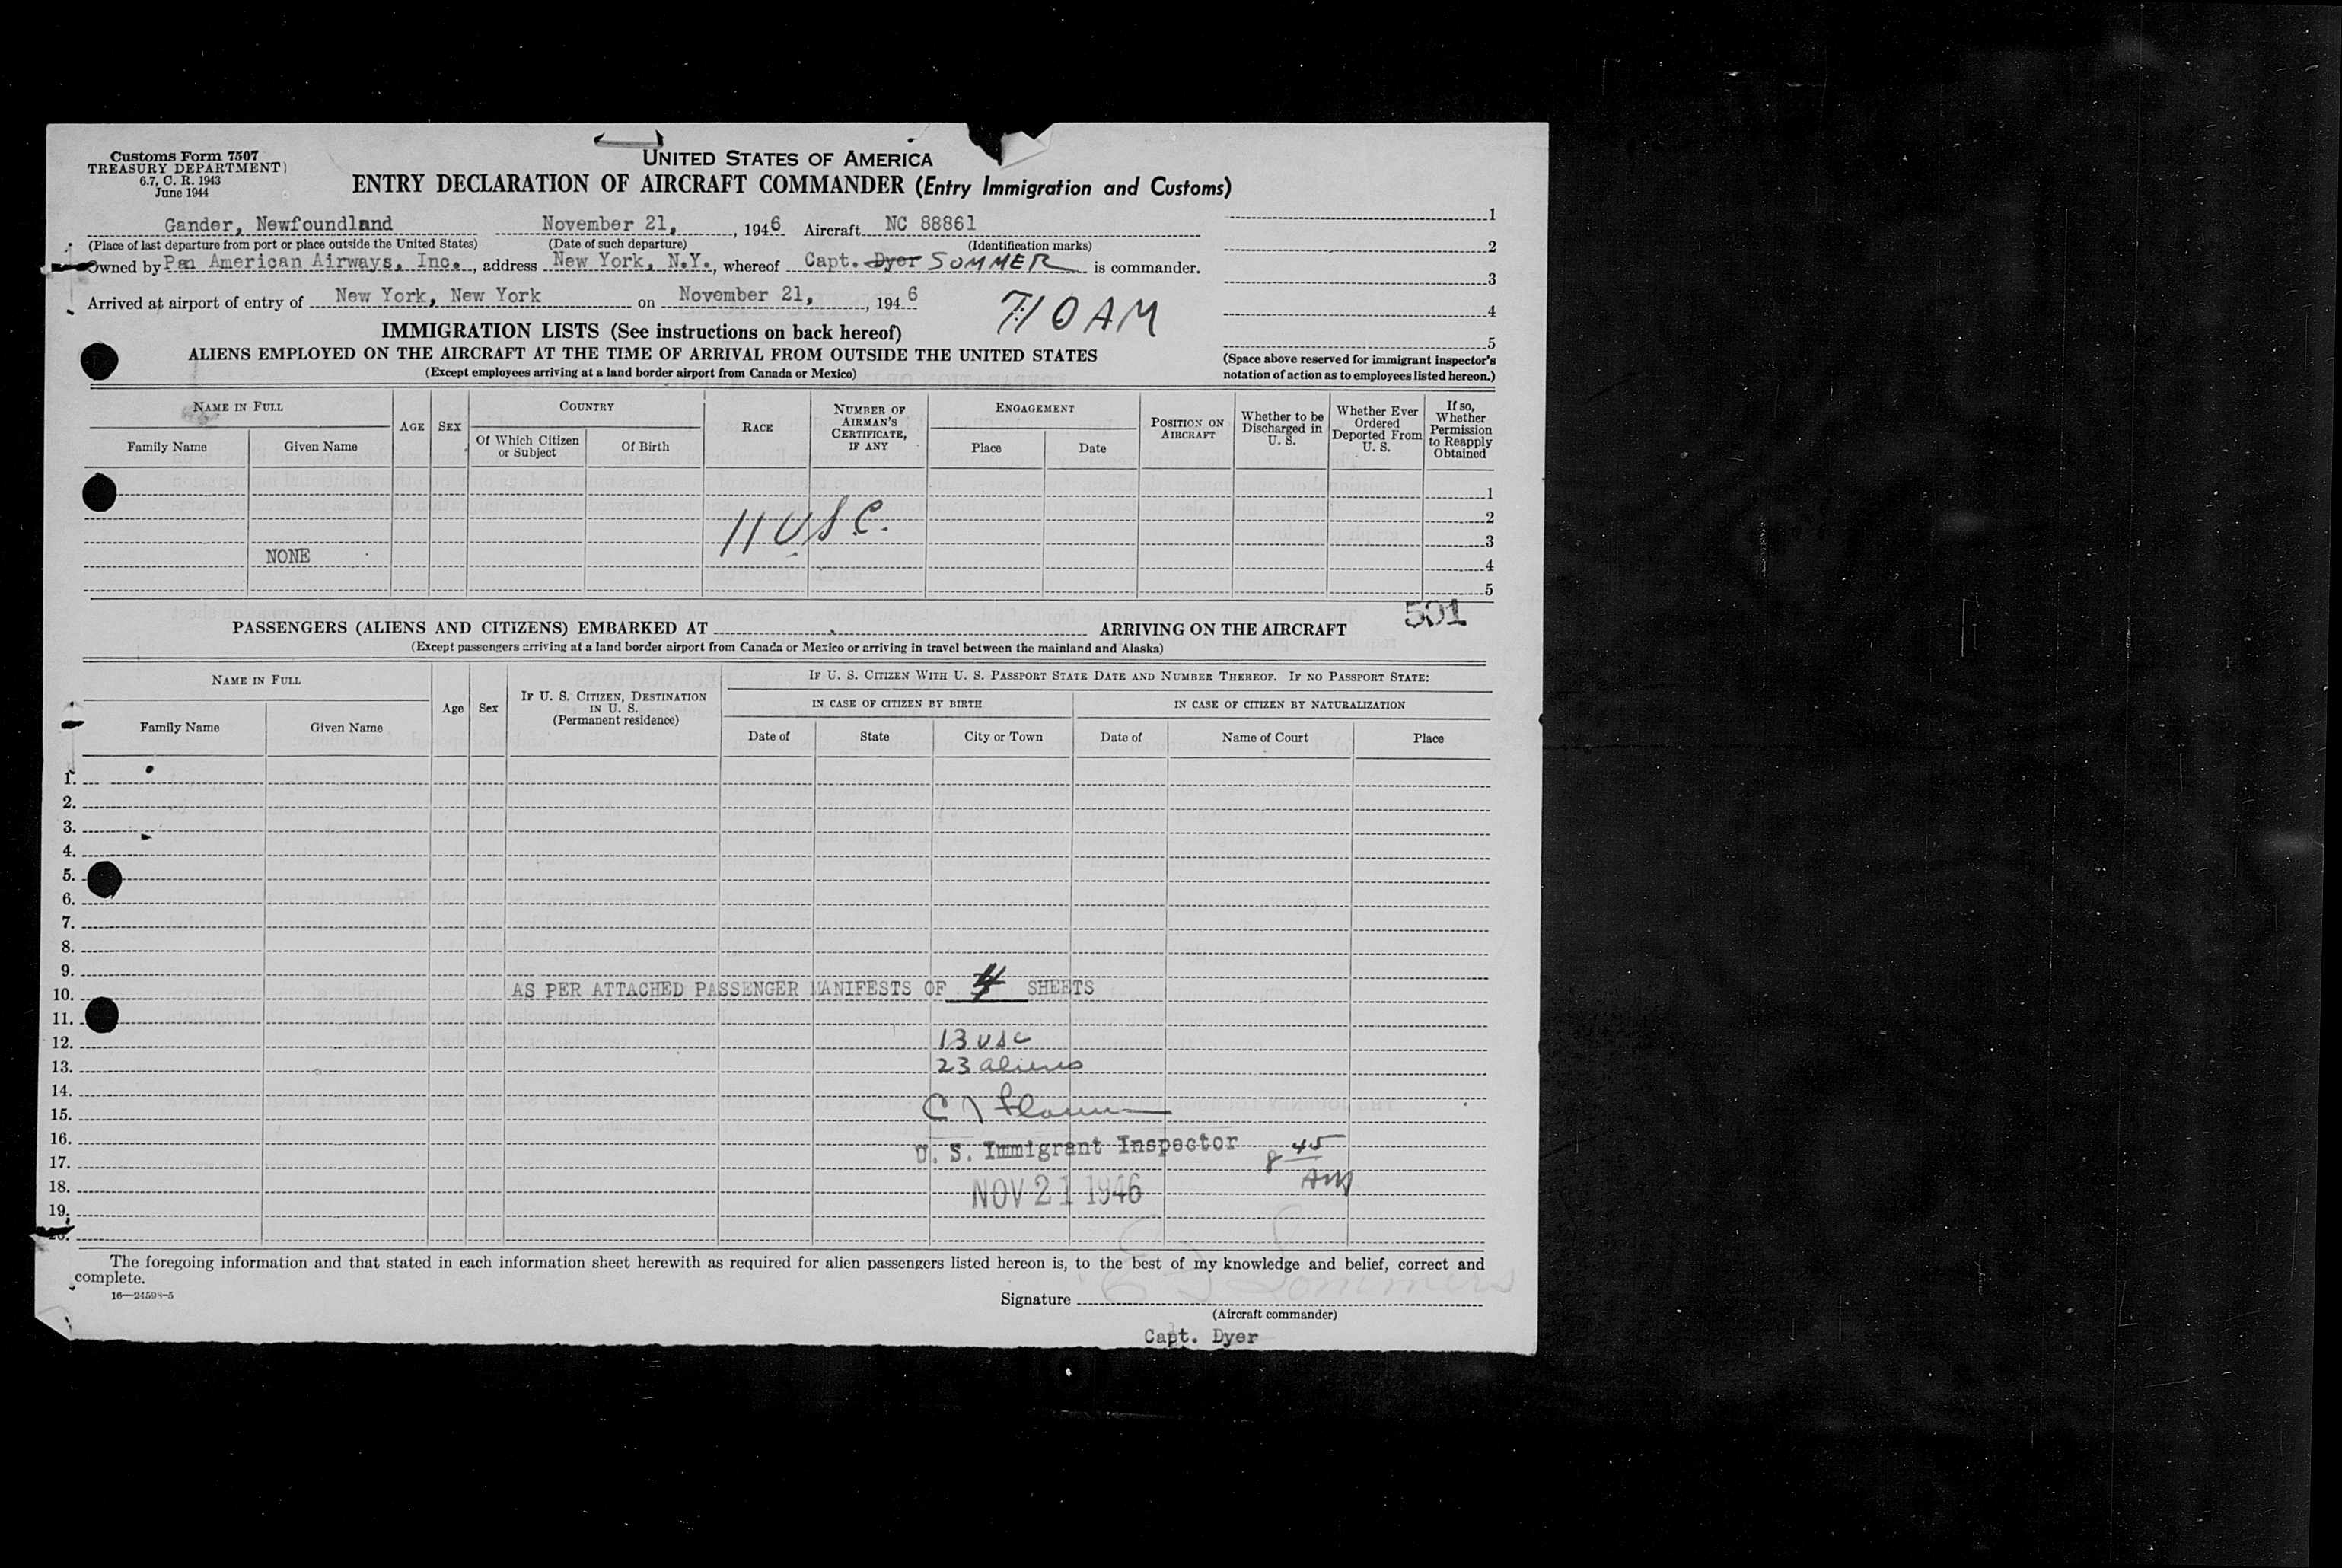 Customs Form 7507
TREASURY DEPARTMENT
6.7, C. R. 1943
June 1944
UNITED STATES OF AMERICA
ENTRY DECLARATION OF AIRCRAFT COMMANDER (Entry Immigration and Customs)
Gander, Newfoundland November 21, , 1946 Aircraft NC 88861
(Place of last departure from port or place outside the United States) (Date of such departure) (Identification marks)
Owned by Pan American Airways, Inc. , address New York, N.Y. , whereof Capt. Dyer SOMMER is commander.
Arrived at airport of entry of New York, New York on November 21, , 1946
7:10 AM
1
2
3
4
5
(Space above reserved for immigrant inspector's
notation of action as to employees listed hereon.)
IMMIGRATION LISTS (See instructions on back hereof)
ALIENS EMPLOYED ON THE AIRCRAFT AT THE TIME OF ARRIVAL FROM OUTSIDE THE UNITED STATES
(Except employees arriving at a land border airport from Canada or Mexico)
NAME IN FULL
Family Name Given Name
AGE
SEX
COUNTRY
Of Which Citizen or Subject
Of Birth
RACE
NUMBER OF AIRMAN'S CERTIFICATE, IF ANY
ENGAGEMENT
Place Date
POSITION ON AIRCRAFT
Whether to be Discharged in U. S.
Whether Ever Ordered Deported From U. S.
If so, Whether Permission to Reapply Obtained
1
2
3
4
5
11 USC.
NONE
501
PASSENGERS (ALIENS AND CITIZENS) EMBARKED AT ARRIVING ON THE AIRCRAFT
(Except passengers arriving at a land border airport from Canada or Mexico or arriving in travel between the mainland and Alaska)
NAME IN FULL
Family Name Given Name
Age
Sex
IF U. S. CITIZEN, DESTINATION IN U. S.
(Permanent residence)
IF U. S. CITIZEN WITH U. S. PASSPORT STATE DATE AND NUMBER THEREOF. IF NO PASSPORT STATE:
IN CASE OF CITIZEN BY BIRTH IN CASE OF CITIZEN BY NATURALIZATION
Date of State City or Town Date of Name of Court Place
1.
2.
3.
4.
5.
6.
7.
8.
9.
10. AS PER ATTACHED PASSENGER MANIFESTS OF 4 SHEETS
11.
12. 13 USC
13. 23 aliens
14.
15.
16. U. S. Immigrant Inspector 8 45
17. AM
18. NOV 21 1946
19.
20.
The foregoing information and that stated in each information sheet herewith as required for alien passengers listed hereon is, to the best of my knowledge and belief, correct and
complete.
16—24598-5
Signature
(Aircraft commander)
Capt. Dyer